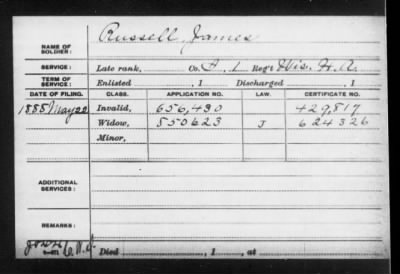 Russell, James
NAME OF SOLDIER:
SERVICE: Late rank, Co. A, 1 Reg't Wis. H.A.
TERM OF SERVICE: Enlisted , 1 Discharged , 1
DATE OF FILING. CLASS. APPLICATION NO. LAW. CERTIFICATE NO.
1888 May 22 Invalid, 656,430 429,817
Widow, 550623 J 624326
Minor,
ADDITIONAL SERVICES:
REMARKS:
Died , 1 , at